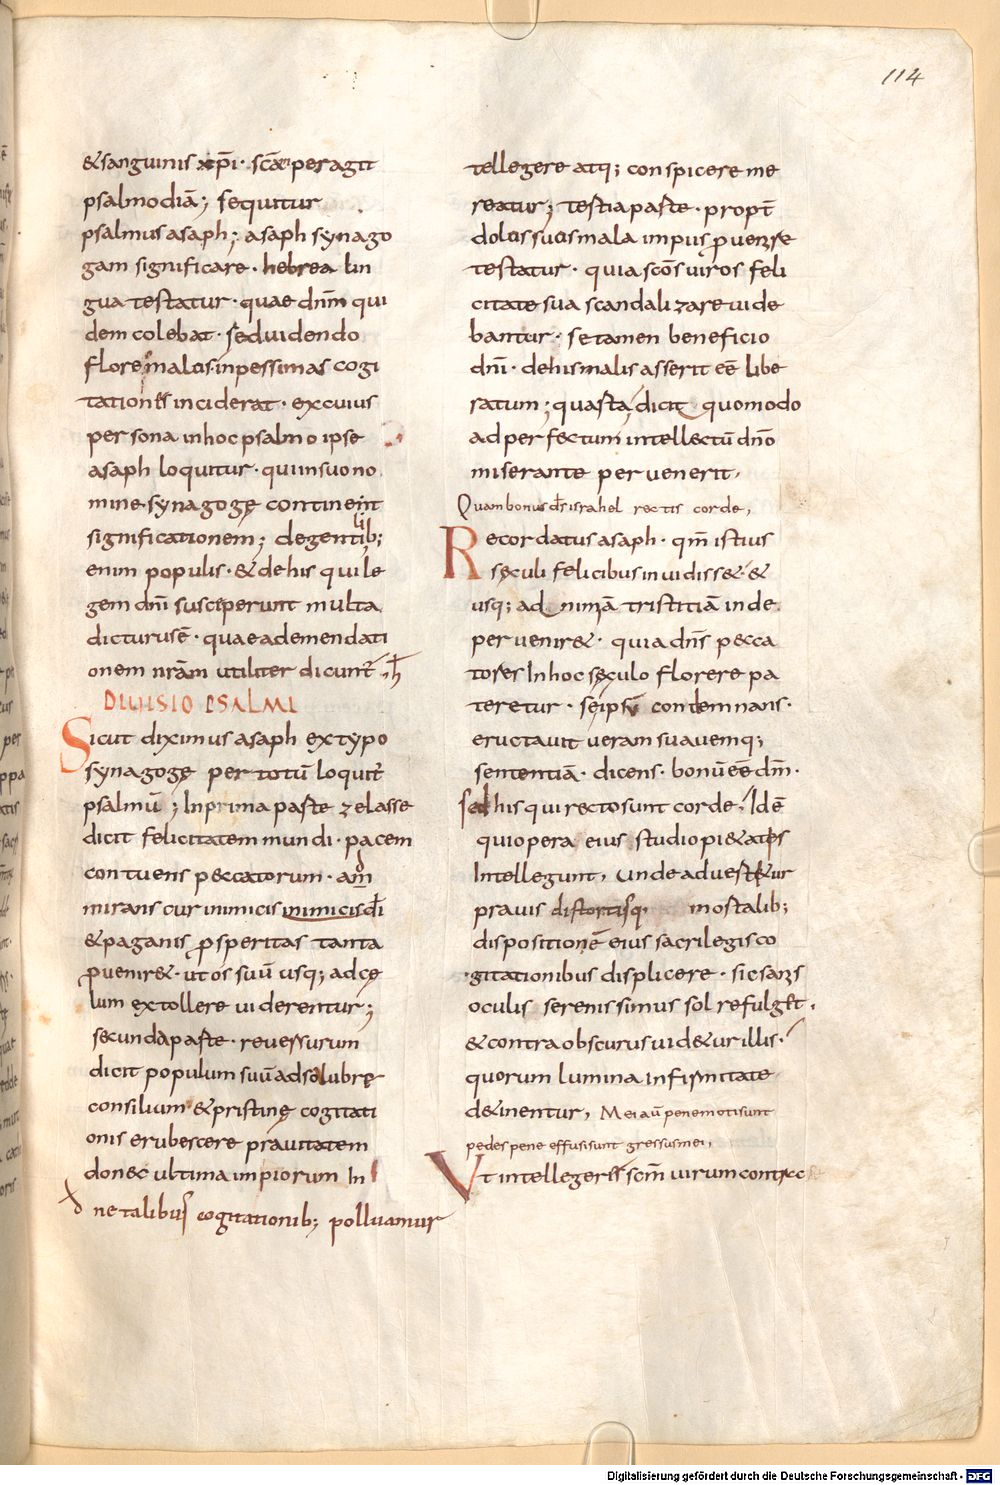 114
&sanguinis xp̄i· scāe peragit
psalmodiā; sequitur
psalmus asaph; asaph synago
gam significare· hebrea lin
gua testatur· quae dnm̄ qui
dem colebat· sed uidendo
flore malis inpessimas cogi
tationes inciderat· excuius
persona inhoc psalmo ipse
asaph loquitur· qui insuo no
mine synagogę continent
significationem; degentilib;
enim populis· & dehis qui le
gem dnī susceperunt multa
dicturus ē· quae ademendati
onem nrām utiliter dicunt̄ h̄
DIUISIO PSALMI
Sicut diximus asaph extypo
synagogę per totū loquit̄
psalmū; Inprima parte zelasse
dicit felicitatem mundi· pacem
contuens peccatorum· am̄
mirans cur inimicis inimicis dī
& paganis ꝓsperitas tanta
ꝓuenir&· ut os suū usq; ad cę
lum extollere uiderentur;
secunda parte· reuersurum
dicit populum suū ad salubrę
consilium & pristinę cogitati
onis erubescere prauitatem
donec ultima impiorum In
ne talibus cogitationib; polluamur
tellegere atq; conspicere me
reatur; tertia parte· propt̄
dolis suis mala impiis ꝓuenire
testatur· quia scōs uiros feli
citate sua scandalizare uide
bantur· se tamen beneficio
dnī· dehis malis asserit eē libe
ratum; quarta dicit quomodo
ad perfectum intellectū dn̄o
miserante peruenerit,
Quam bonus d̄s israhel rectis corde,
Recordatus asaph· qm̄ istius
sęculi felicibus inuidiss& &
usq; ad nimiā tristitiā inde
peruenir&· quia dn̄s pecca
tores In hoc sęculo florere pa
teretur· seipsū contemnans·
eructauit ueram suauemq;
sententiā· dicens· bonū eē dm̄·
sed his qui recto sunt corde, Id ē
qui opera eius studio pi&atis
Intellegunt, unde aduert&ur
prauis distortisq; mortalib;
dispositionē eius sacrilegis co
gitationibus displicere· sic sanis
oculis serenissimus sol refulget·
& contra obscurus uid&ur illis·
quorum lumina infirmitate
d&inentur, Mei aū pene moti sunt
pedes pene effusi sunt gressus mei,
Ut intellegeres scm̄ uirum
Digitalisierung gefördert durch die Deutsche Forschungsgemeinschaft - DFG